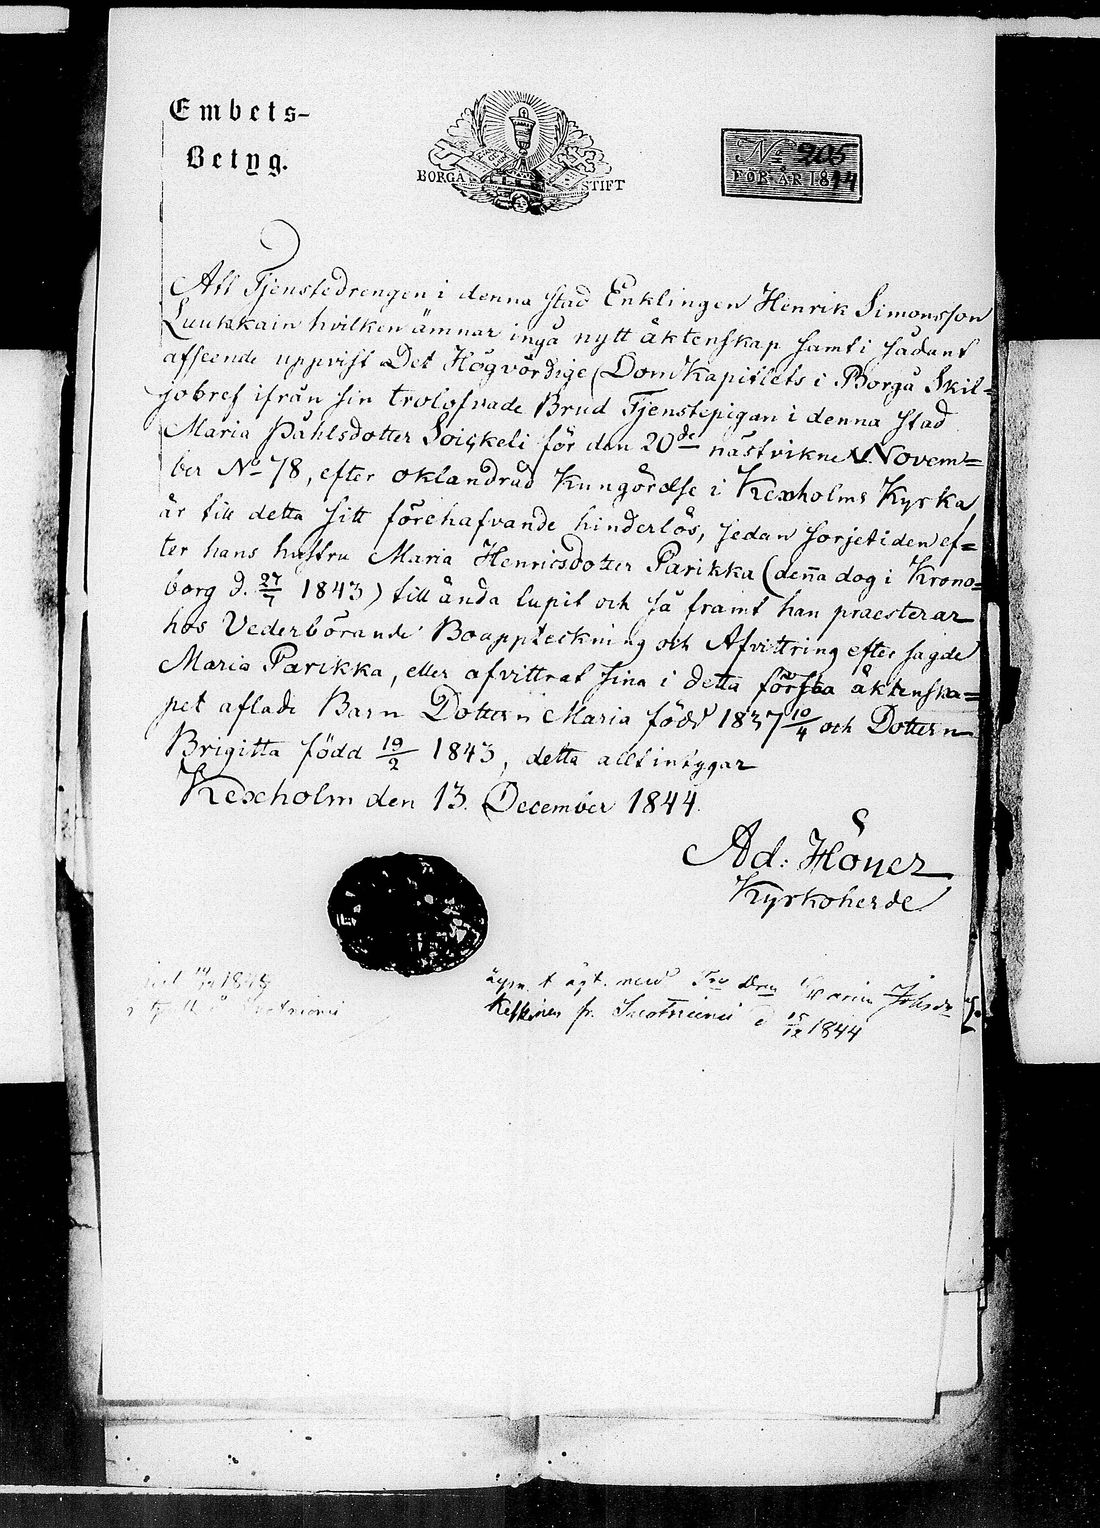 Embets-
Betyg.
BORGÅ STIFT
No 205
FÖR ÅR 1844
Att Tjenstedrengen i denna stad Enklingen Henrik Simonsson
Luukkain hvilken ämnar ingå nytt äktenskap samt i sådant
afseende uppvist Det Högvördige Domkapitlets i Borgå Skil=
jobref ifrån sin trolofvade Brud Tjenstepigan i denna stad
Maria Påhlsdotter Soickeli för den 20de nästvikne Novem=
ber No 78, efter oklandrad Kungörelse i Kexholms Kyrka,
är till detta sitt förehafvande hinderlös, sedan sorjetiden ef=
ter hans hustru Maria Henricsdotter Parikka (denna dog i Krono=
borg d. 27/7 1843) till ända lupit och så framt han praesterar
hos Vederbörande Boappteckning och Afvittring efter sagde
Maria Parikka, eller afvittrat sina i detta första äktenska=
pet aflade Barn Dottern Maria född 1837 10/4 och Dottern
Brigitta född 19/2 1843, detta allt intygar
Kexholm den 13. December 1844.
Ad: Höner
Kyrkoherde
t. ägt. med Maria
Keskinen fr. d 15/12 1844